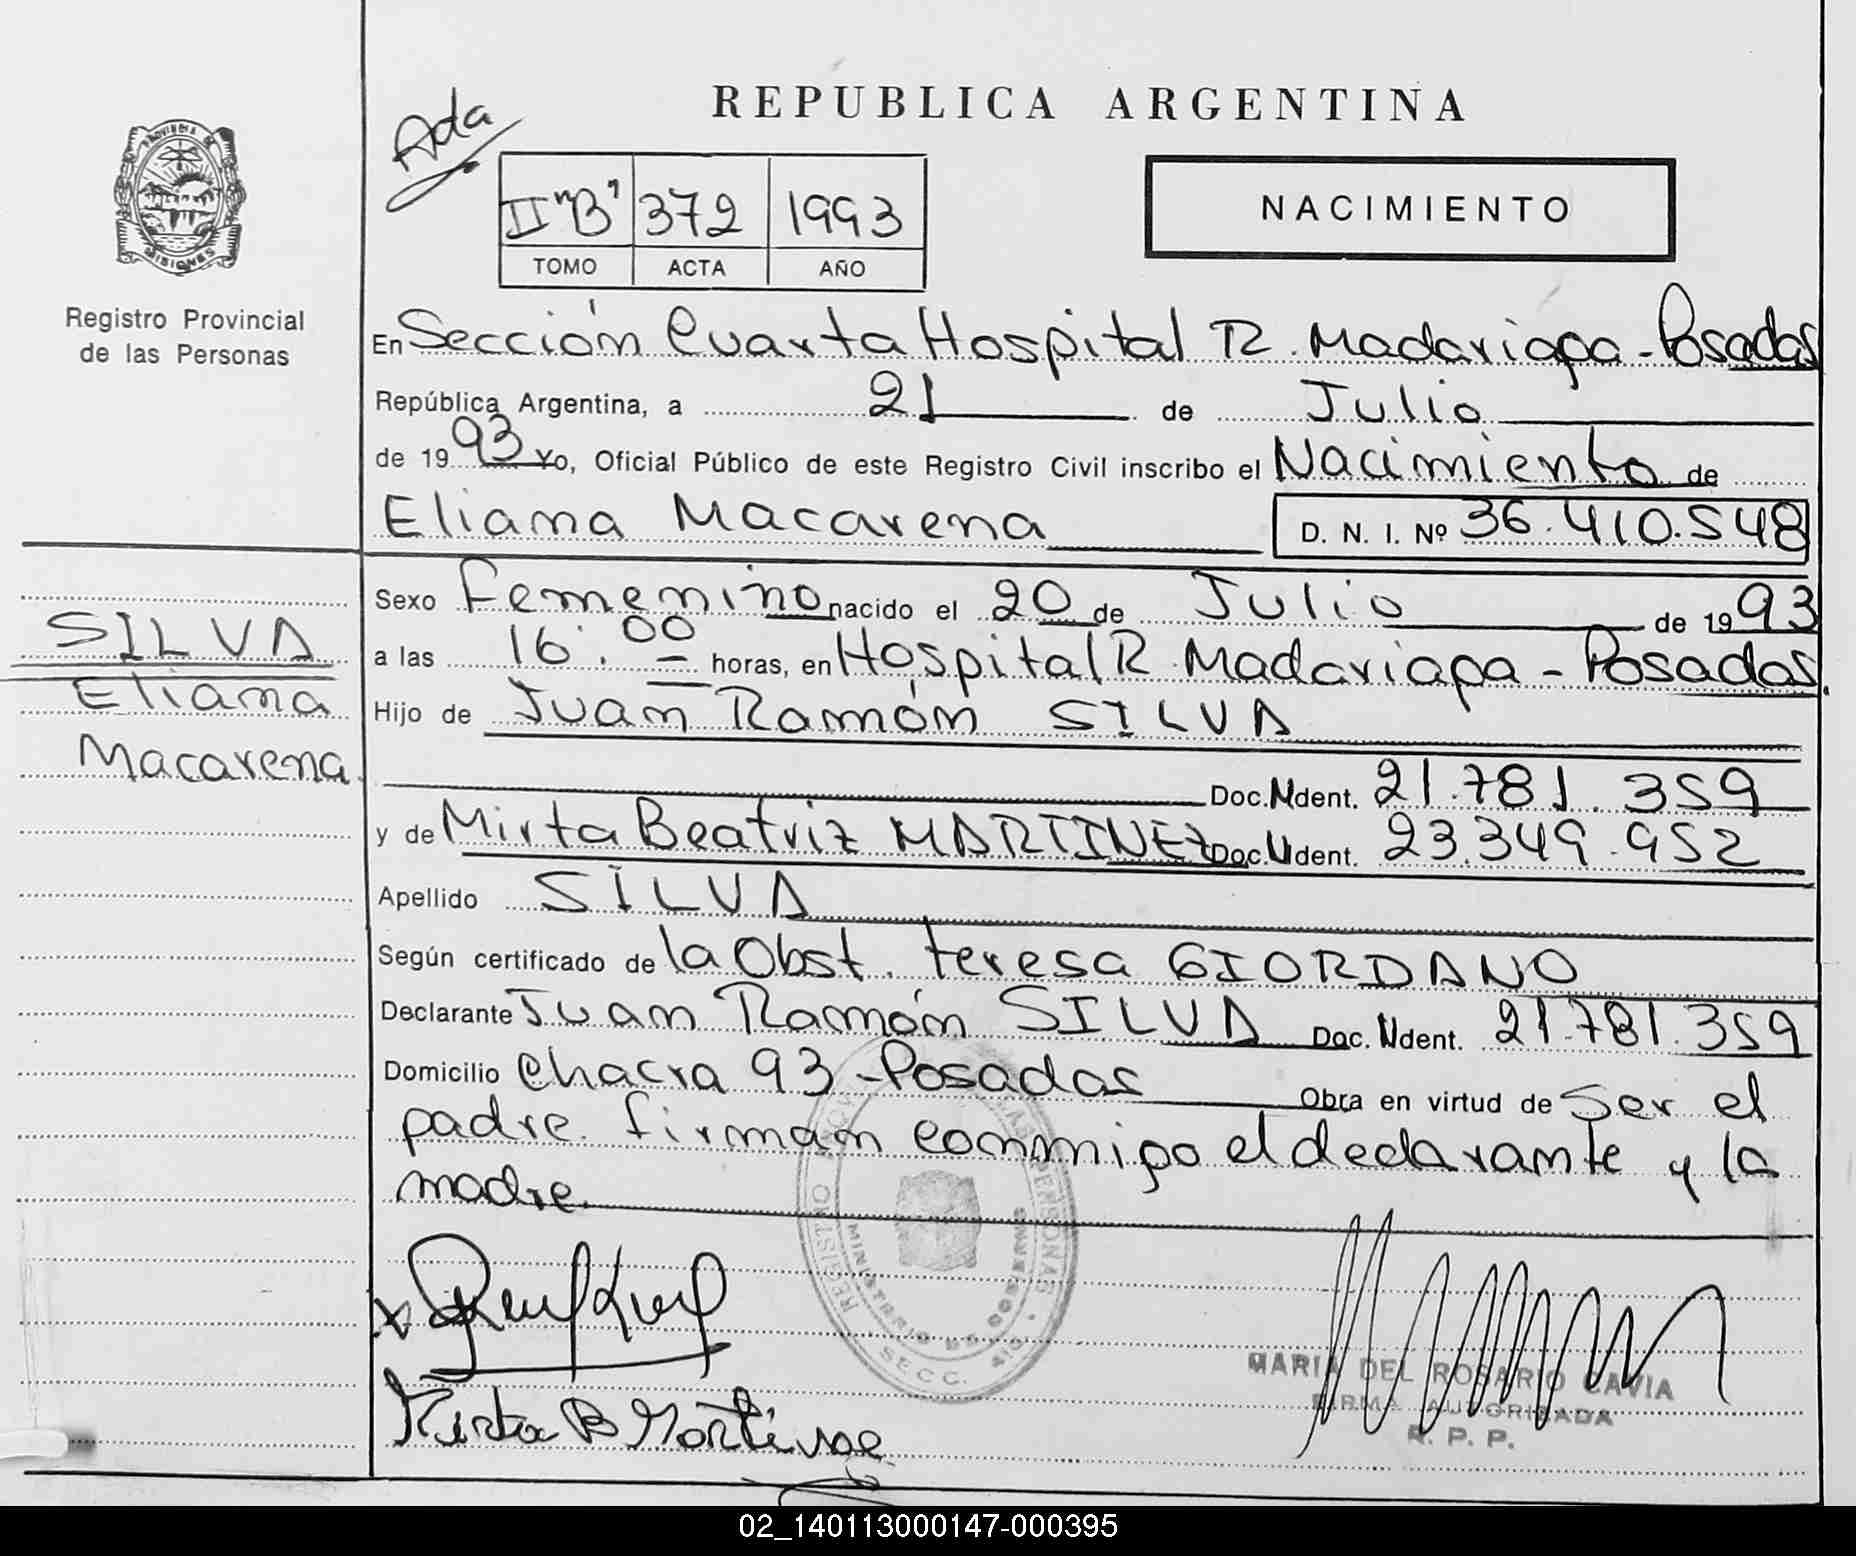 REPUBLICA ARGENTINA
Ada
PROVINCIA DE
MISIONES
Registro Provincial
de las Personas
II "B" 372 1993
TOMO ACTA AÑO
NACIMIENTO
En Sección Cuarta Hospital R. Madariaga - Posadas
República Argentina, a 21 de Julio
de 1993 Yo, Oficial Público de este Registro Civil inscribo el Nacimiento de
Eliana Macarena D. N. I. Nº 36.410.548
Sexo Femenino nacido el 20 de Julio de 1993
a las 16:00 horas, en Hospital R. Madariaga - Posadas.
Hijo de Juan Ramón SILVA
Doc. Ident. 21.781.359
y de Mirta Beatriz MARTINEZ Doc. Ident. 23.349.952
Apellido SILVA
Según certificado de la Obst. Teresa GIORDANO
Declarante Juan Ramón SILVA Doc. Ident. 21.781.359
Domicilio Chacra 93 - Posadas Obra en virtud de Ser el
padre. firman conmigo el declarante y la
madre.
SILVA
Eliana
Macarena
REGISTRO LAS PERSONAS
MINISTERIO DE GOBIERNO
SECC. 4
Mirta B Martinez
MARIA DEL ROSARIO CAVIA
FIRMA AUTORIZADA
R. P. P.
02_140113000147-000395